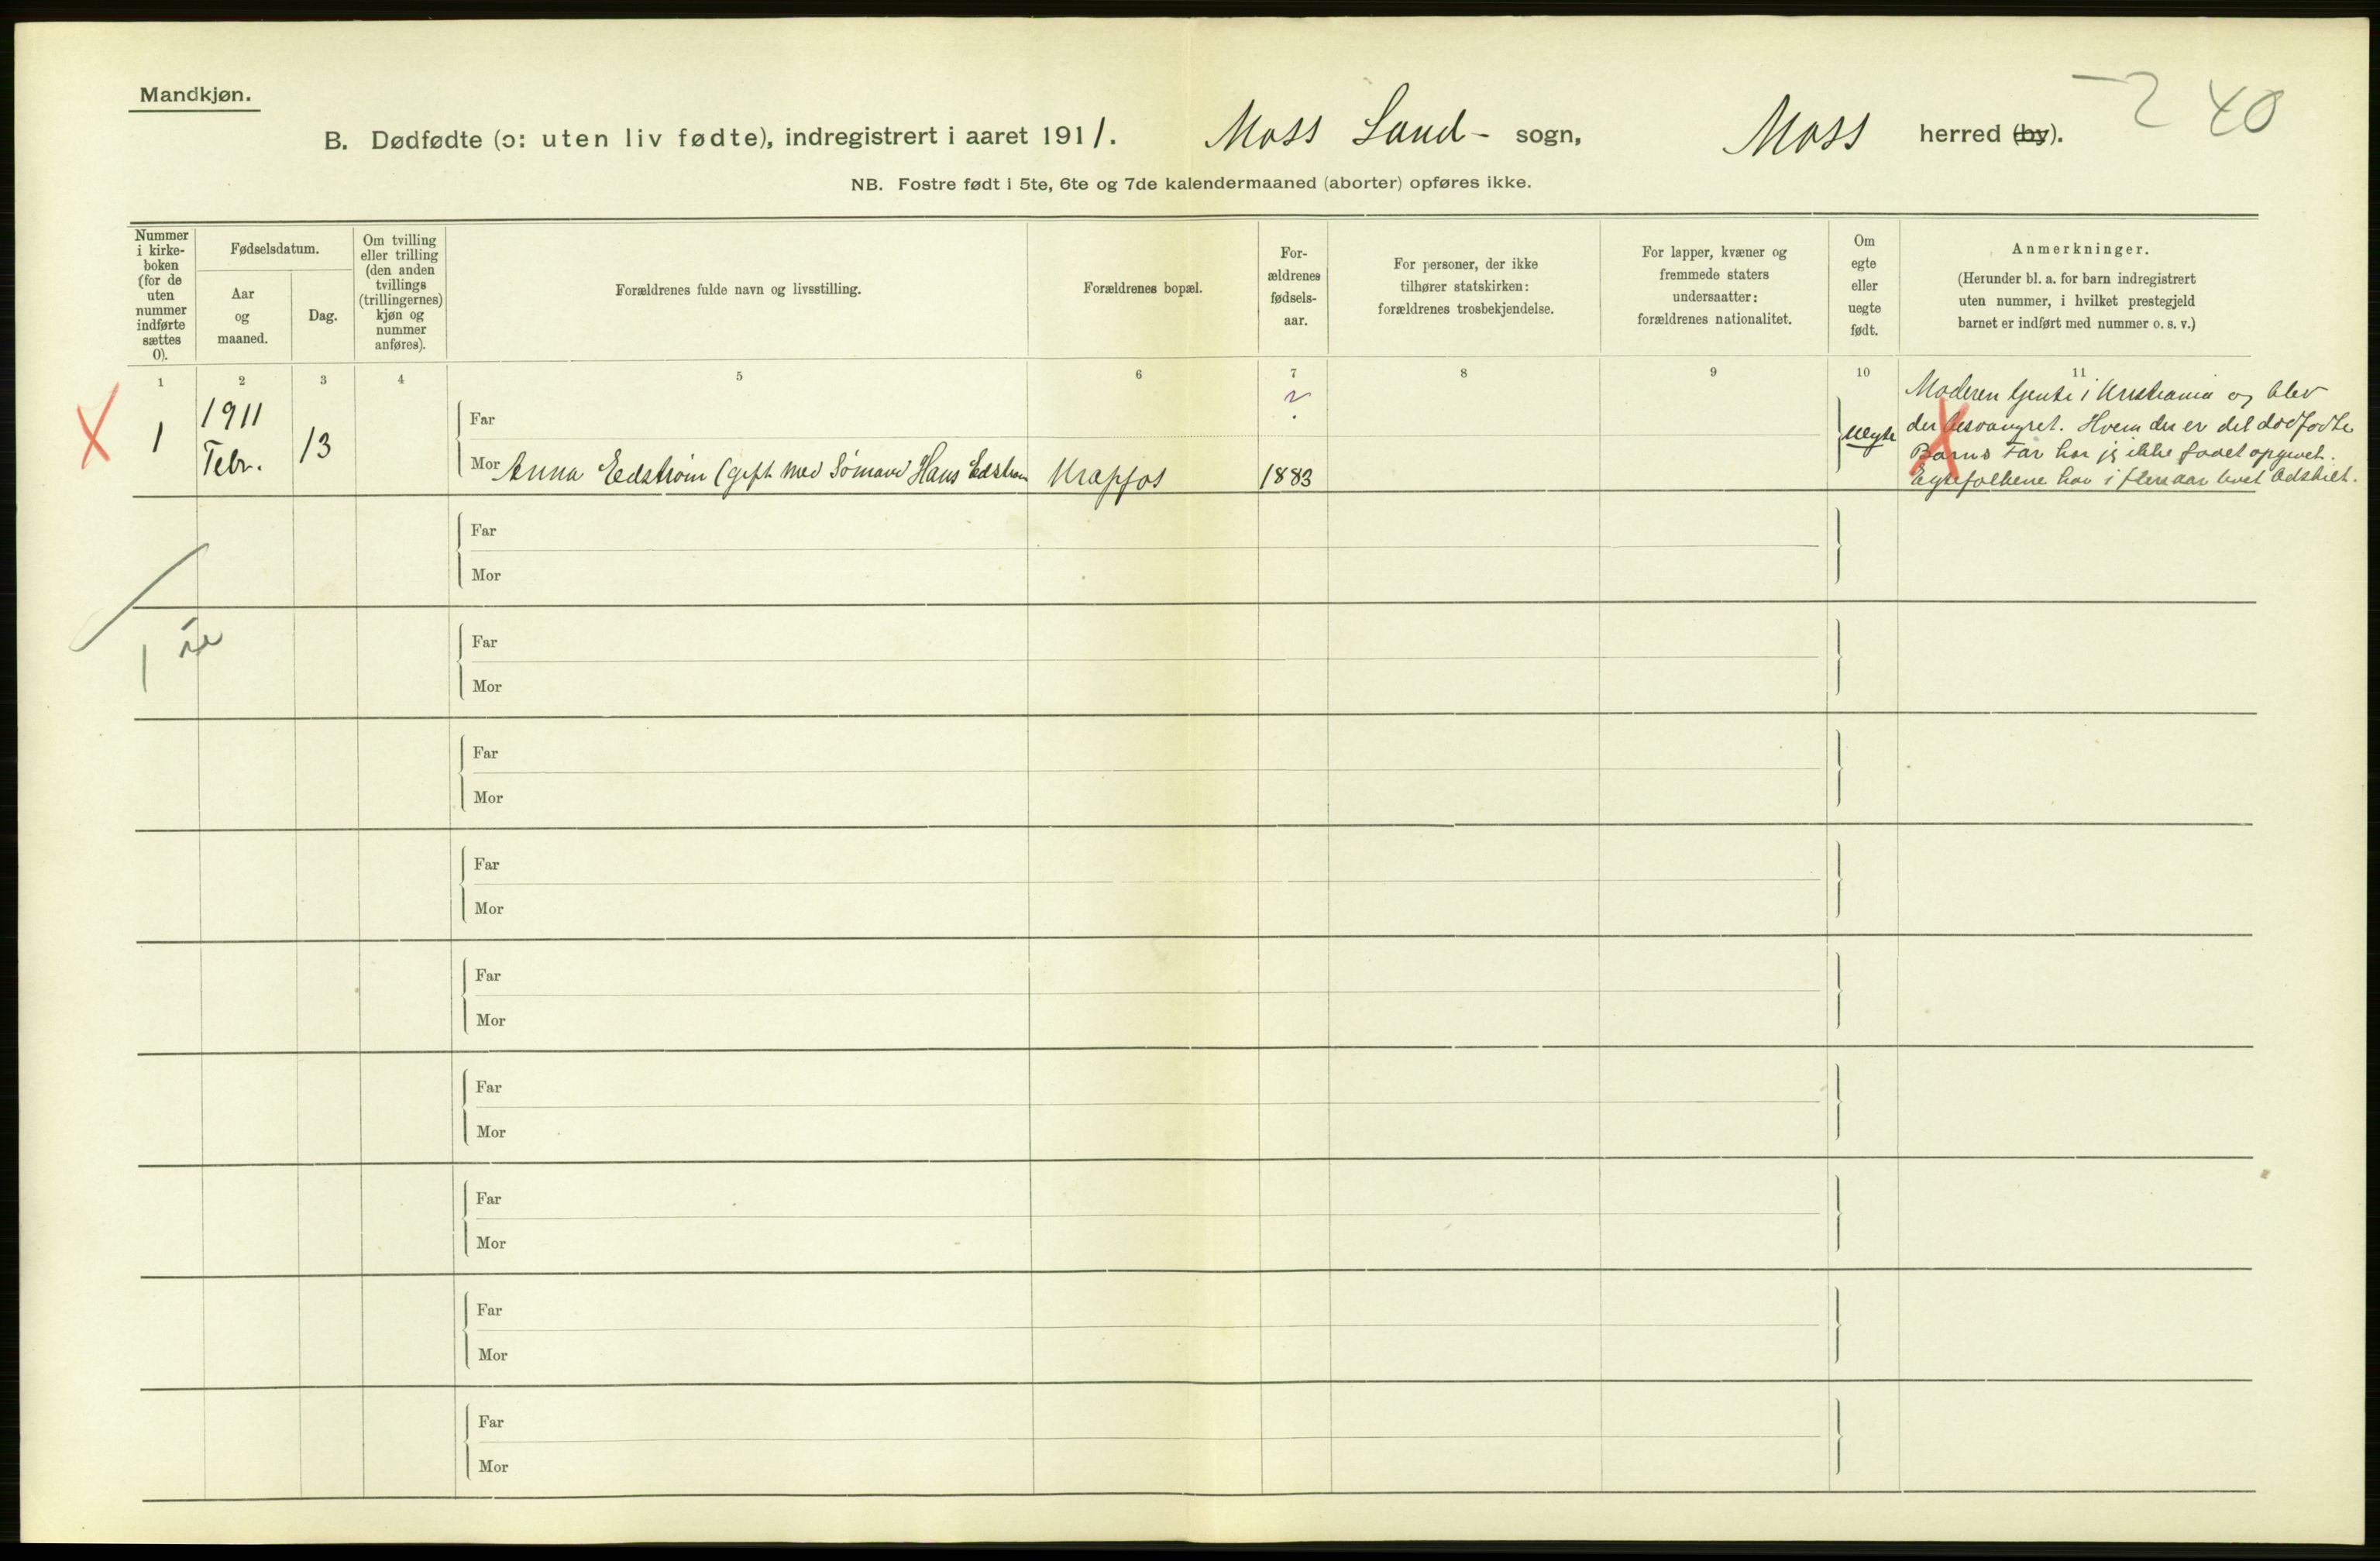 Mandkjøn.
2 40
B. Dødfødte (ɔ: uten liv fødte), indregistrert i aaret 1911. Moss Land- sogn, Moss herred (by).
NB. Fostre født i 5te, 6te og 7de kalendermaaned (aborter) opføres ikke.
Nummer
i kirke-
boken
(for de
uten
nummer
indførte
sættes
0).
Fødselsdatum.
Aar
og
maaned.
Dag.
Om tvilling
eller trilling
(den anden
tvillings
(trillingernes)
kjøn og
nummer
anføres).
Forældrenes fulde navn og livsstilling.
Forældrenes bopæl.
For-
ældrenes
fødsels-
aar.
For personer, der ikke
tilhører statskirken:
forældrenes trosbekjendelse.
For lapper, kvæner og
fremmede staters
undersaatter:
forældrenes nationalitet.
Om
egte
eller
uegte
født.
Anmerkninger.
(Herunder bl. a. for barn indregistrert
uten nummer, i hvilket prestegjeld
barnet er indført med nummer o. s. v.)
1 2 3 4 5 6 7 8 9 10 11
1
1911
Febr.
13
Far
?
Mor Anna Eedstrøm (gift med Sømand Hans Edstrøm
Krapfos
1883
uegte
Moderen tjente i Kristiania og blev
der besvangret. Hvem der er det dødfødte
Barns Far har jeg ikke faaet opgivet.
Egtefolkene har i flere aar levet adskilt.
Far
Mor
1 ue
Far
Mor
Far
Mor
Far
Mor
Far
Mor
Far
Mor
Far
Mor
Far
Mor
Far
Mor